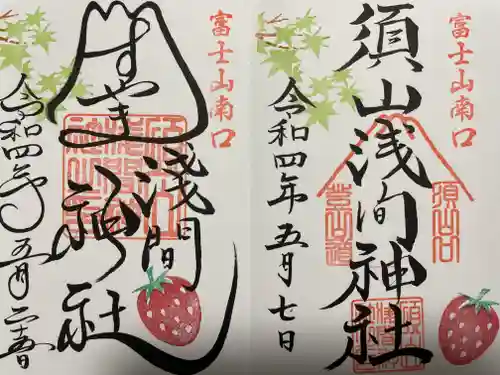 富士山南口
須山浅間神社
須山口
登山道
令和四年五月七日
富士山南口
すやま
浅間
神社
令和四年五月